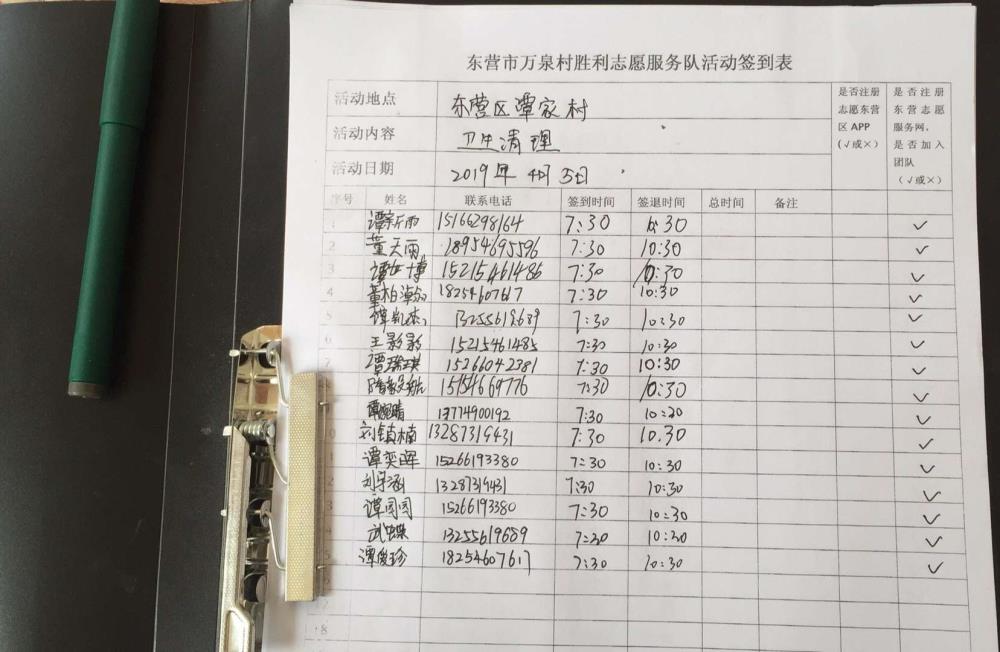 东营市万泉村胜利志愿服务队活动签到表
活动地点 东营区谭家村
活动内容 卫生清理
活动日期 2019年4月5日
是否注册志愿东营区APP（√或×）
是否注册东营志愿服务网，是否加入团队（√或×）
序号 姓名 联系电话 签到时间 签退时间 总时间 备注
1 谭新雨 15166298164 7:30 10:30 ✓
2 董天雨 18954695596 7:30 10:30 ✓
3 15215461486 7:30 10:30 ✓
4 18254607617 7:30 10:30 ✓
5 谭凯杰 13255619689 7:30 10:30 ✓
6 王影影 15215461485 7:30 10:30 ✓
7 谭瑞琪 15266042381 7:30 10:30 ✓
15154669776 7:30 10:30 ✓
谭晚晴 13774900192 7:30 10:20 ✓
刘镇楠 13287319431 7:30 10:30 ✓
谭奕晖 15266193380 7:30 10:30 ✓
刘宇涵 13287319431 7:30 10:30 ✓
谭园园 15266193380 7:30 10:30 ✓
武蝶 13255619689 7:30 10:30 ✓
谭俊珍 18254607617 7:30 10:30 ✓